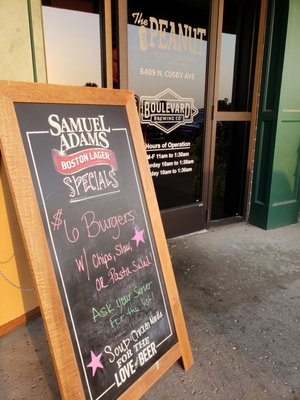 The
PEANUT
6409 N. COSBY AVE
BOULEVARD
BREWING CO.
Hours of Operation
M-F 11am to 1:30am
Saturday 10am to 1:30am
Sunday 10am to 1:30am
SAMUEL
ADAMS
BOSTON LAGER
SPECIALS
$6 Burgers
w/ Chips, Slaw,
OR Pasta Salad
Ask your Server
For the list!
Soup-Chicken
FOR THE
LOVE OF
BEER